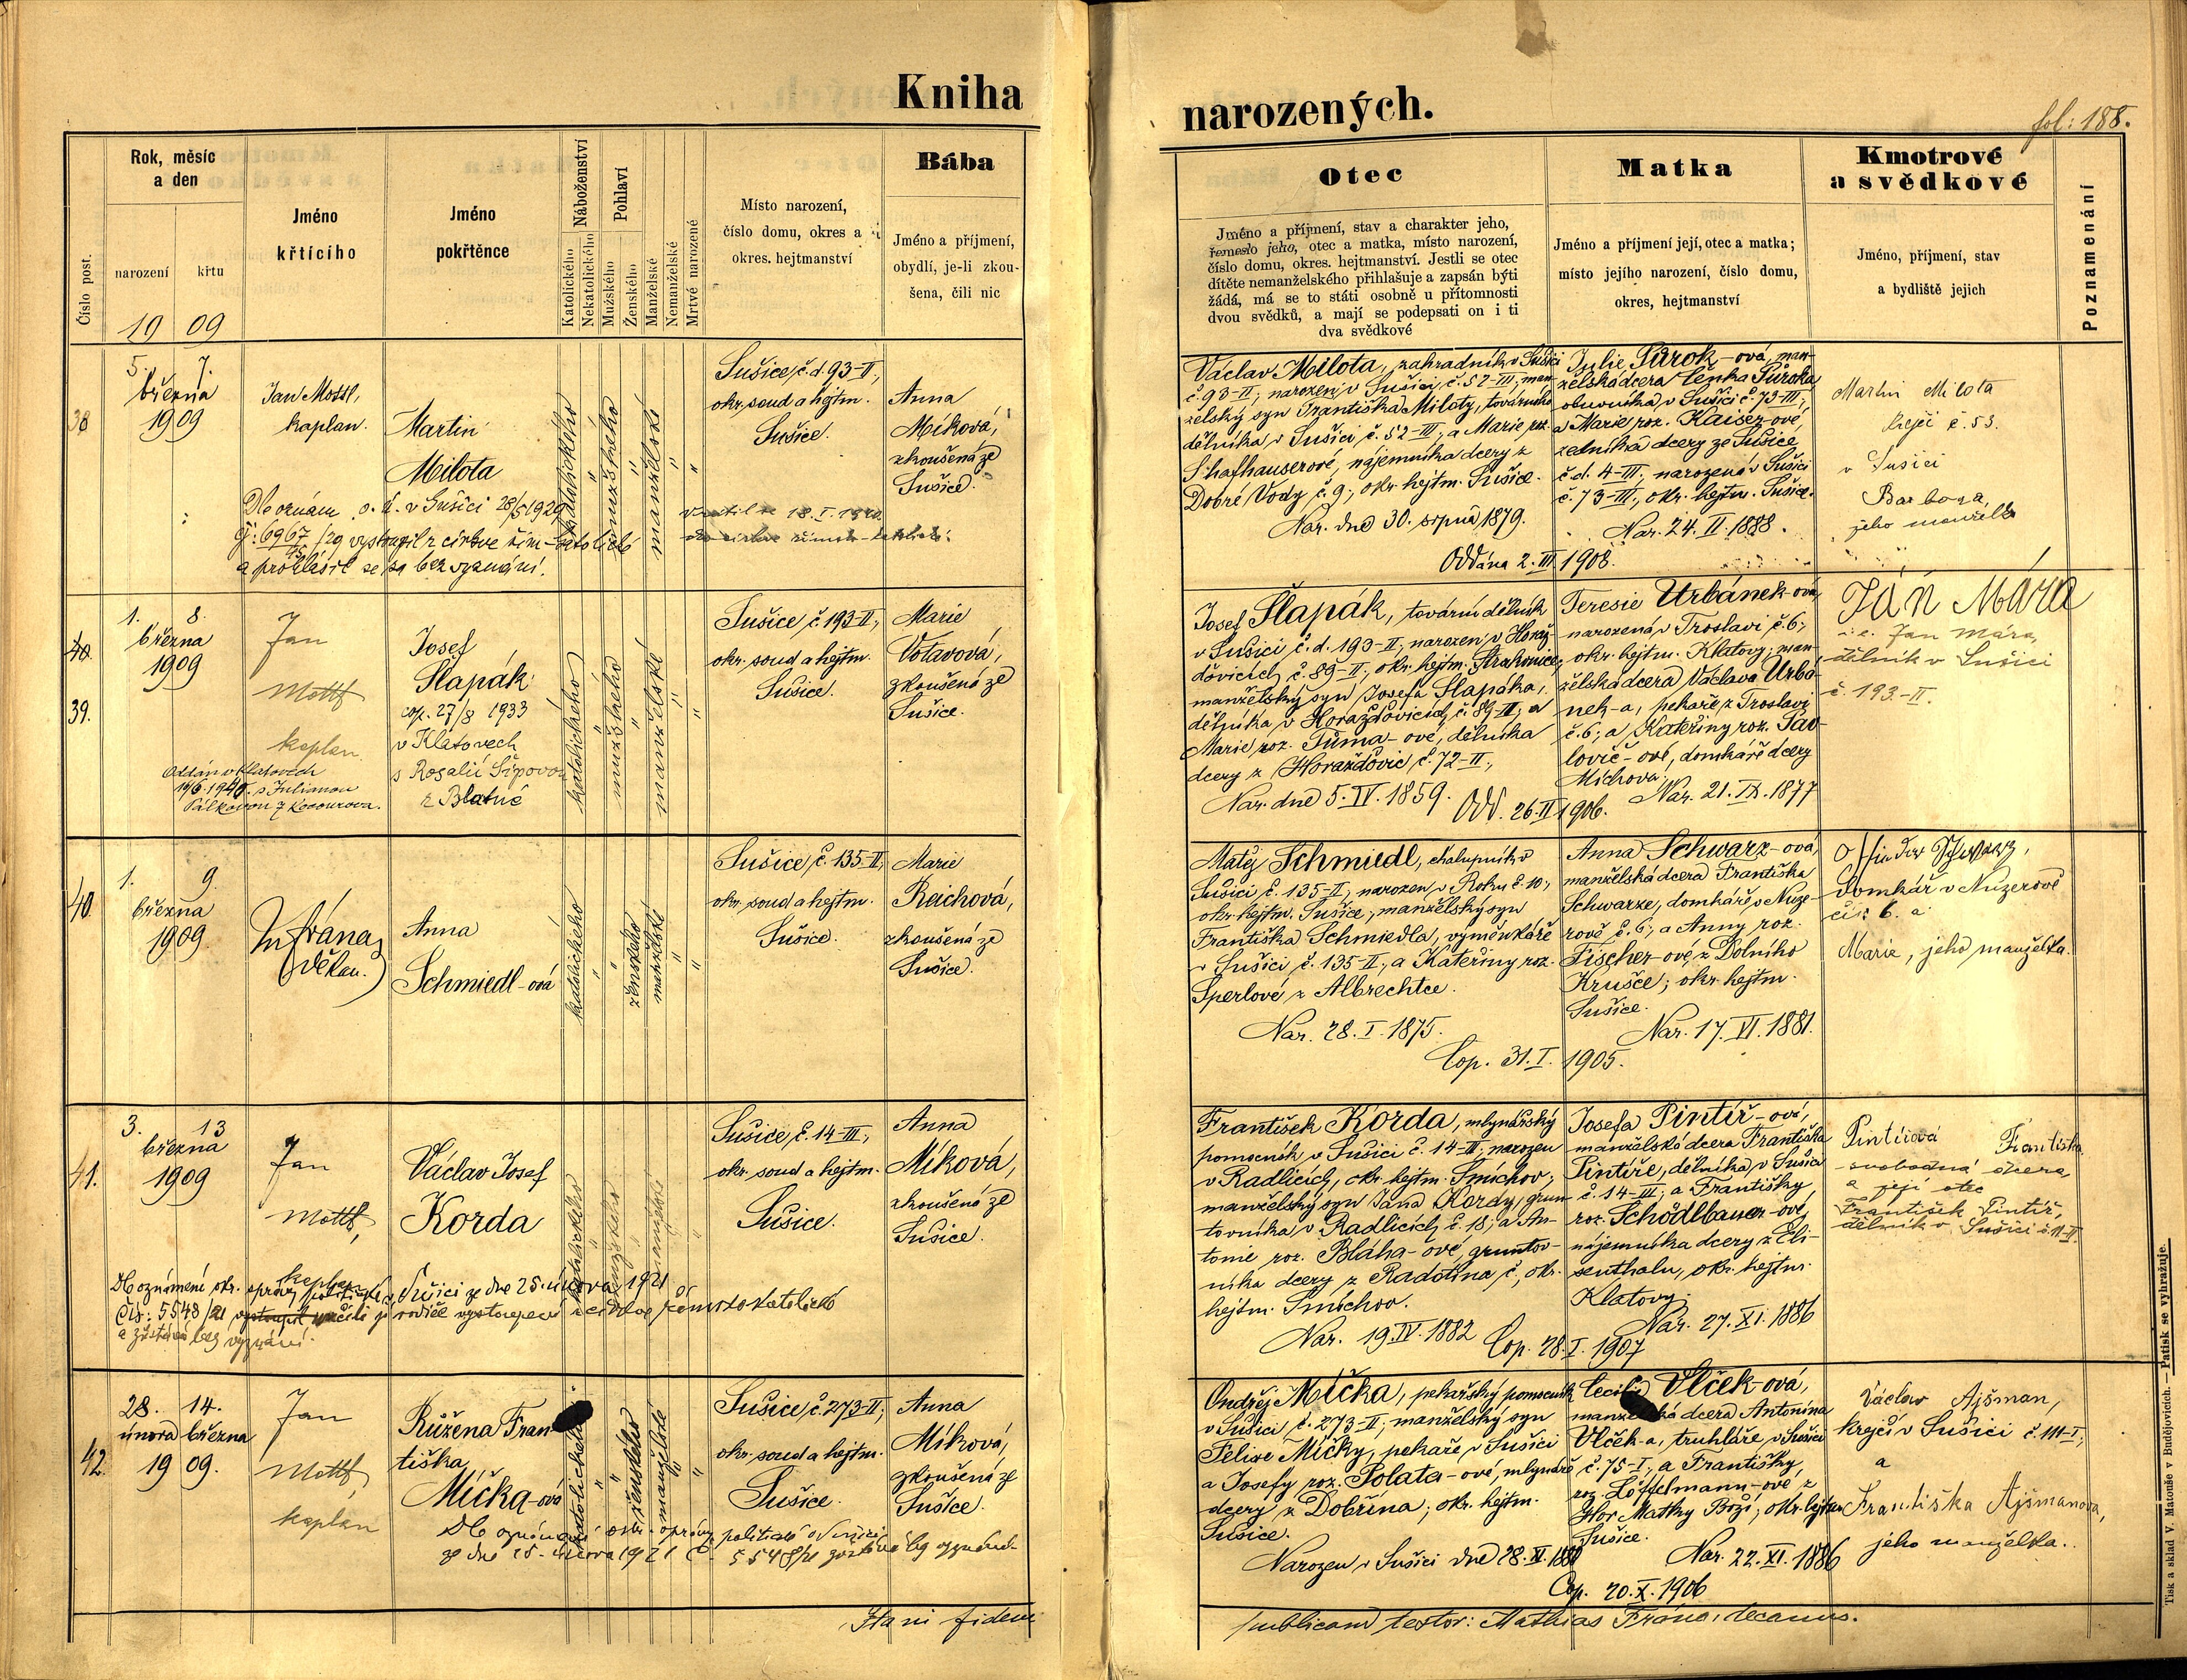 Kniha narozených.
fol: 188.
Číslo post.
Rok, měsíc
a den
narození
křtu
19 09
Jméno
křtícího
Jméno
pokřtěnce
Náboženství
Katolického
Nekatolického
Pohlaví
Mužského
Ženského
Manželské
Nemanželské
Mrtvé narozené
Místo narození,
číslo domu, okres a
okres. hejtmanství
Bába
Jméno a příjmení,
obydlí, je-li zkou-
šena, čili nic
Otec
Jméno a příjmení, stav a charakter jeho,
řemeslo jeho, otec a matka, místo narození,
číslo domu, okres. hejtmanství. Jestli se otec
dítěte nemanželského přihlašuje a zapsán býti
žádá, má se to státi osobně u přítomnosti
dvou svědků, a mají se podepsati on i ti
dva svědkové
Matka
Jméno a příjmení její, otec a matka;
místo jejího narození, číslo domu,
okres, hejtmanství
Kmotrové
a svědkové
Jméno, příjmení, stav
a bydliště jejich
Poznamenání
38
5. 7.
března
1909
Jan Mottl,
kaplan.
Martin
Milota
katolického
mužského
manželské
Sušice, č. d. 93-II,
okr. soud a hejtm.
Sušice.
Anna
Míková,
zkoušená ze
Sušice.
Dle oznám. o. ú. v Sušici 28/5 1929
č: 6967/29 vystoupil z církve řím-katolické
a prohlásil se za bez vyznání.
18. I. 1940
Václav Milota, zahradník v Sušici
č. 93-II; narozen v Sušici č. 52-III; man-
želský syn Františka Miloty, továrního
dělníka v Sušici, č. 52-III; a Marie roz.
Schafhauserové, nájemníka dcery z
Dobré Vody č. 9; okr. hejtm. Sušice.
Nar. dne 30. srpna 1879.
Julie Půrok-ová, man-
želská dcera Čeňka Půroka,
obuvníka v Sušici č. 73-III;
a Marie roz. Kaiser-ové,
zedníka dcery ze Sušice
č. d. 4-III; narozená v Sušici
č. 73-III, okr. hejtm. Sušice.
Nar. 24. II. 1888.
Oddána 2. III 1908.
Martin Milota
krejčí č. 53.
v Sušici
Barbora,
jeho manželka
40.
39.
1. 8.
března
1909
Jan
Mottl
kaplan
Josef
Šlapák
cop. 27/8 1933
v Klatovech
s Rosalií Šípovou
z Blatné
Oddán v Klatovech
1940 s Julianou
Pálkovou z Kocourova.
katolického
mužského
manželské
Sušice, č 193-II;
okr. soud a hejtm.
Sušice.
Marie
Votavová,
zkoušená ze
Sušice.
Josef Šlapák, tovární dělník
v Sušici č. d. 193-II; narozen v Horaž-
ďovicích č. 89-II; okr. hejtm. Strakonice;
manželský syn Josefa Šlapáka,
dělníka v Horažďovicích, č. 89-II; a
Marie roz. Tůma-ové, dělníka
dcery z Horažďovic, č. 72-II;
Nar. dne 5. IV. 1859.
Teresie Urbánek-ová,
narozená v Troslavi č. 6;
okr. hejtm. Klatovy; man-
želská dcera Václava Urbá-
nek-a, pekaře z Troslavi
č. 6; a Kateřiny roz. Pav-
lovič-ové, domkáře dcery
Míchova;
Nar. 21. IX. 1877
Odd. 26. II 1906.
Ján Mára
i. e. Jan Mára,
dělník v Sušici
č. 193-II.
40.
1. 9.
března
1909
M Frána,
děkan.
Anna
Schmiedl-ová
katolického
ženského
manželské
Sušice, č. 135-II,
okr. soud a hejtm.
Sušice.
Marie
Reichová,
zkoušená ze
Sušice.
Matěj Schmiedl, chalupník v
Sušici, č. 135-II; narozen v Roku č. 10;
okr. hejtm. Sušice; manželský syn
Františka Schmiedla, výměnkáře
v Sušici, č. 135-II; a Kateřiny roz.
Šperlové z Albrechtce.
Nar. 28. I. 1875.
Anna Schwarz-ová,
manželská dcera Františka
Schwarze, domkáře v Nuze-
rově č. 6; a Anny roz.
Fischer-ové, z Dolního
Krušce; okr. hejtm.
Sušice.
Nar. 17. VI. 1881.
Cop. 31. I. 1905.
Schwarz,
domkář v Nuzerově
čís 6. a
Marie, jeho manželka.
41.
3. 13
března
1909
Jan
Mottl,
kaplan
Václav Josef
Korda
katolického
mužského
manželské
Sušice, č. 14-III,
okr. soud a hejtm.
Sušice.
Anna
Míková,
zkoušená ze
Sušice.
Dle oznámení okr. správy politické v Sušici ze dne 25. února 1921
čís: 5548/21 vystoupil rodiče vystoupení z církve římskokatolické
a zůstává bez vyznání.
František Korda, mlynářský
pomocník v Sušici č. 14-III; narozen
v Radlicích, okr. hejtm. Smíchov;
manželský syn Jana Kordy, grun-
tovníka v Radlicích č. 18; a An-
tonie roz. Bláha-ové, gruntov-
níka dcery z Radotína č, okr.
hejtm. Smíchov.
Nar. 19. IV. 1882
Josefa Pintíř-ová,
manželská dcera Františka
Pintíře, dělníka v Sušici
č. 14-III; a Františky
roz. Schödlbauer-ové,
nájemníka dcery z Eli-
senthalu, okr. hejtm.
Klatovy.
Nar. 27. XI. 1886
Cop. 28. I. 1907
Pintířová Františka
svobodná dcera,
a její otec
František Pintíř,
dělník v Sušici č.
42.
28. 14.
února března
19 09.
Jan
Mottl,
kaplan
Růžena Fran
tiška
Míčka-ová
katolického
ženského
manželské
Sušice, č 273-II;
okr. soud a hejtm.
Sušice.
Anna
Míková,
zkoušená ze
Sušice.
Dle oznámení okr. správy politické v Sušici
ze dne 25. února 1921 č. 5548/21 zůstává bez vyznání.
Ondřej Míčka, pekařský pomocník
v Sušici č. 273-II; manželský syn
Felixe Míčky, pekaře v Sušici
a Josefy roz. Polata-ové, mlynáře
dcery z Dobřína; okr. hejtm.
Sušice.
Narozen v Sušici dne 28. XI. 188
Cecilie Vlček-ová,
manželská dcera Antonína
Vlček-a, truhláře v Sušici
č. 75-I; a Františky
roz. Löffelmann-ové z
Hor Matky Boží; okr. hejtm
Sušice.
Nar. 22. XI. 1886
Cop. 20. X. 1906
Václav Ajšman,
krejčí v Sušici č. 111-I;
a
Františka Ajšmanova,
jeho manželka.
fidem
publicam testor: Mathias Frána, decanus.
Tisk a sklad V. Matouše v Budějovicích. — Patisk se vyhražuje.